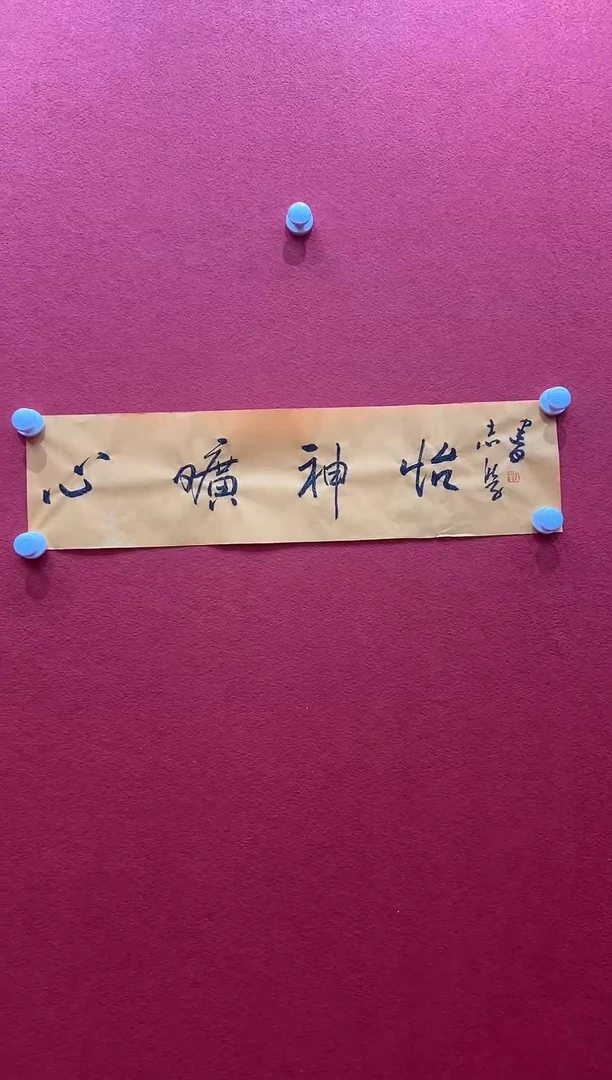 心曠神怡
志學
書